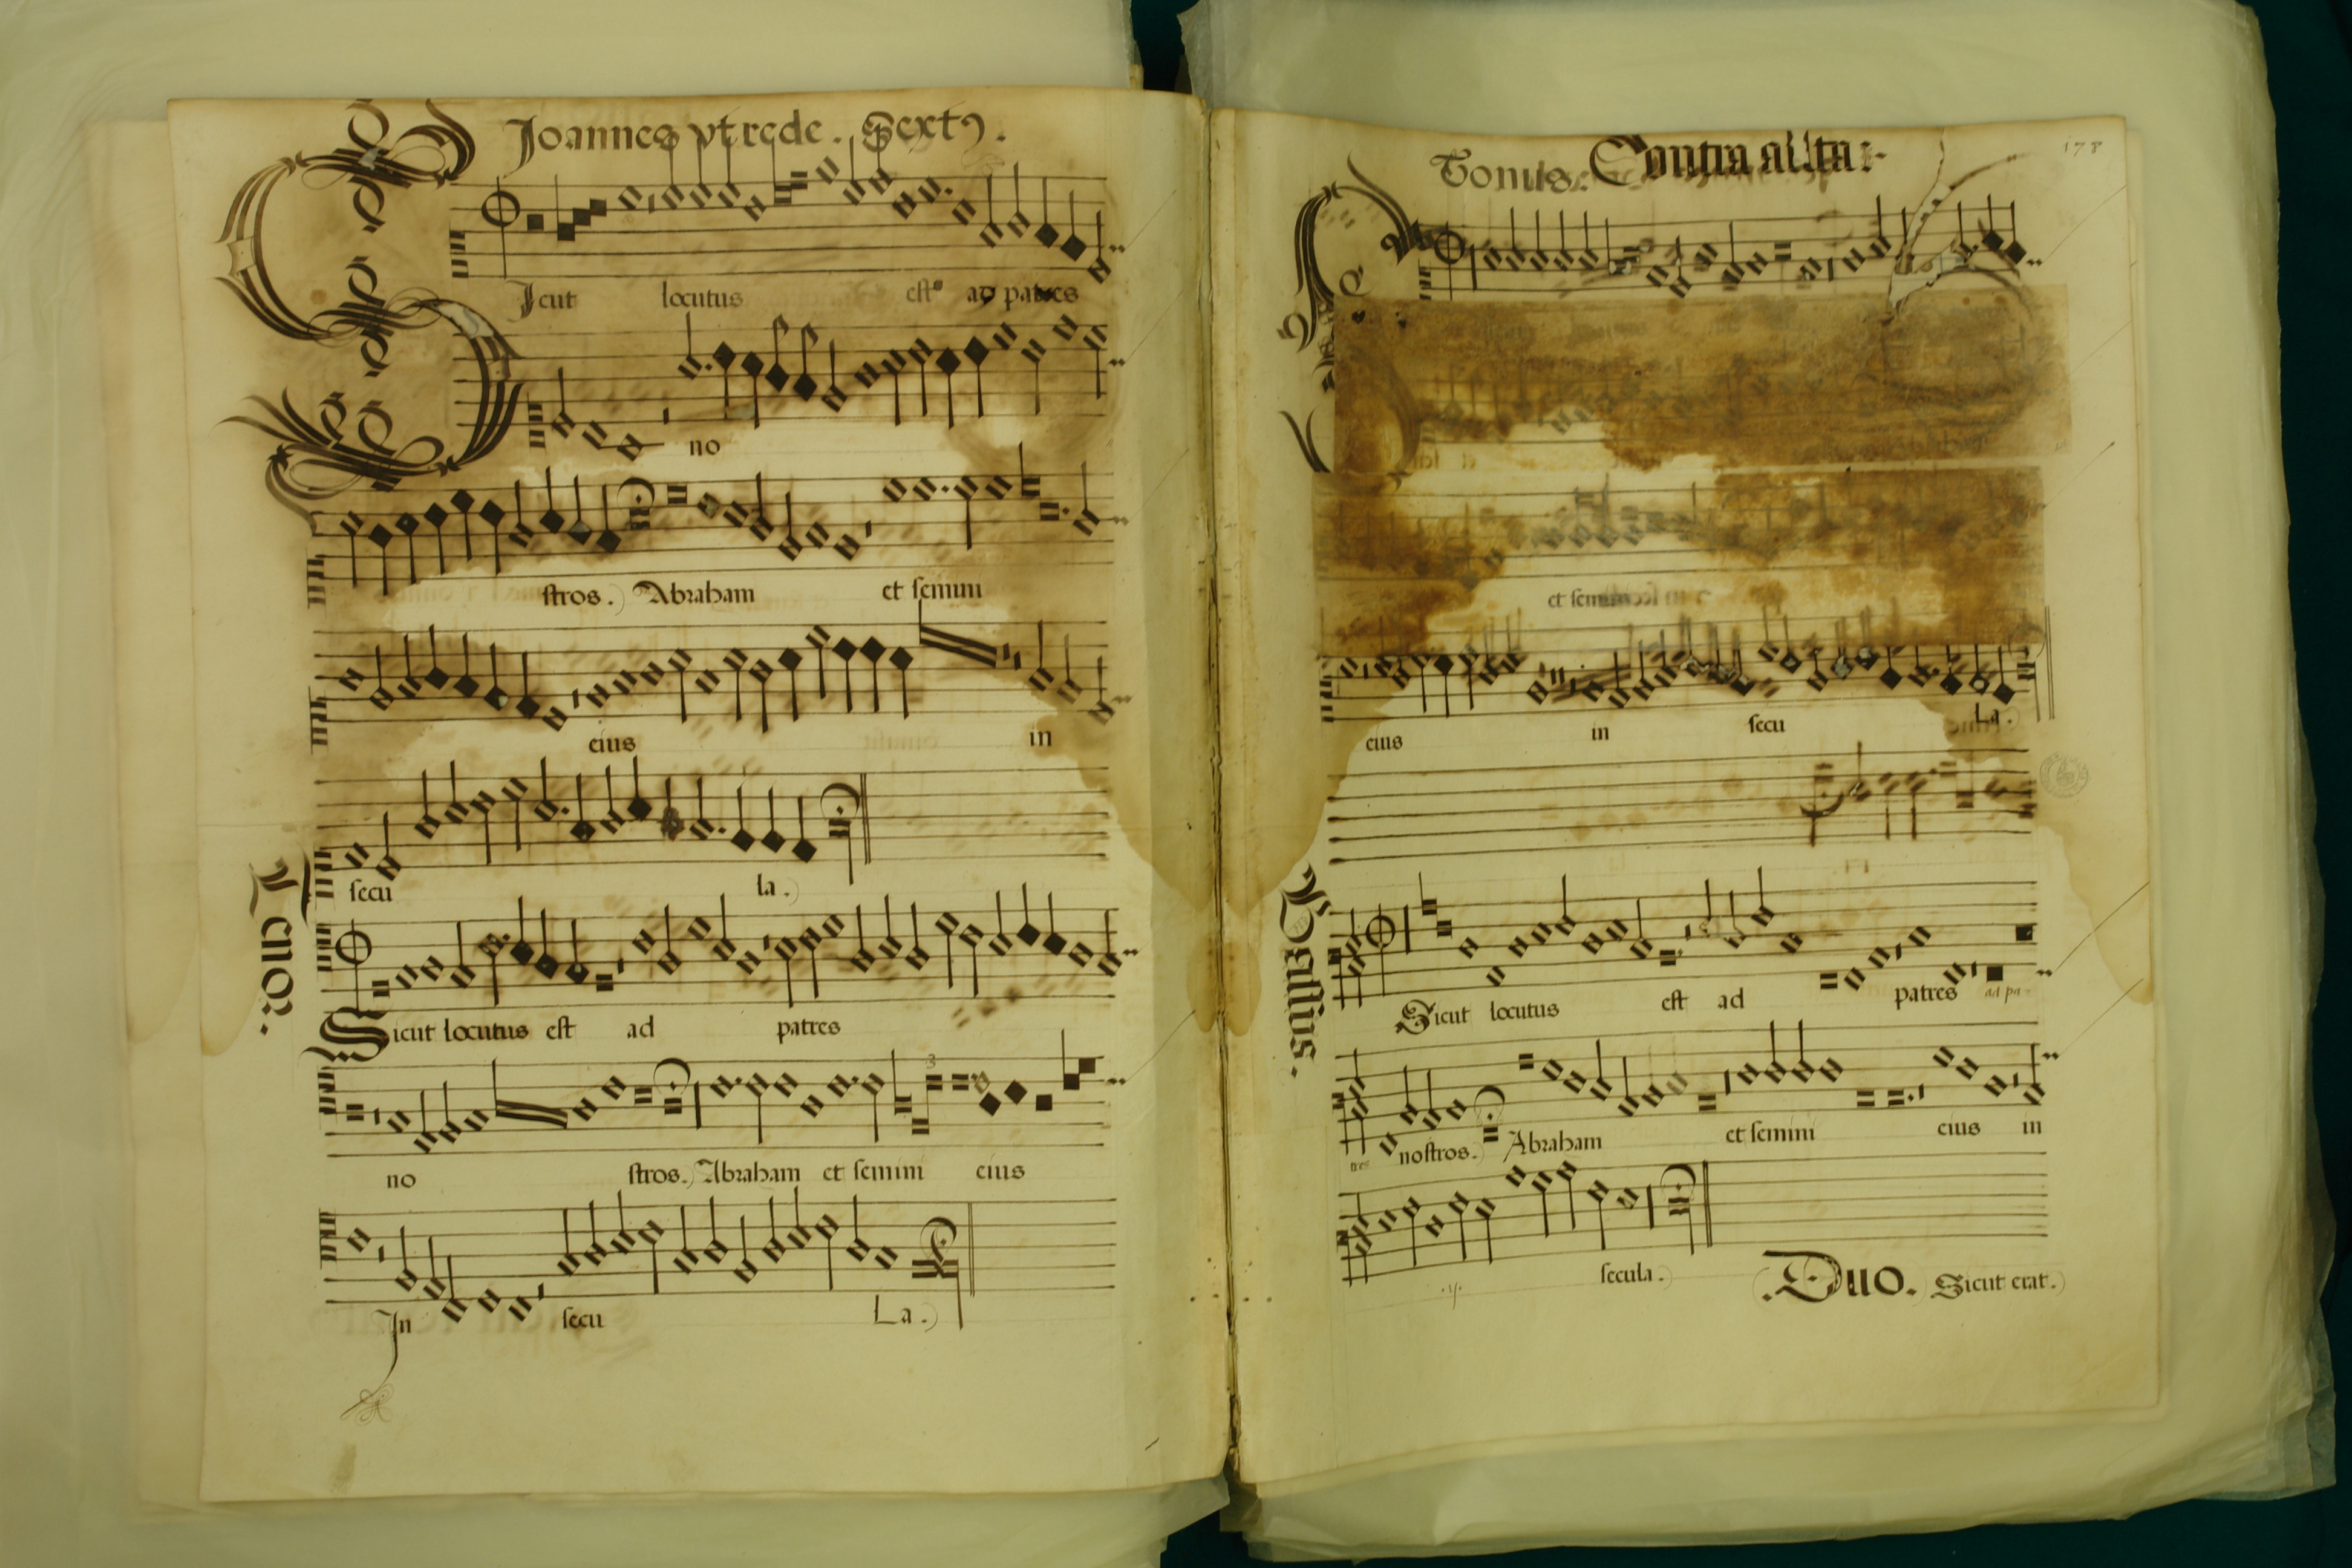 Joannes vtrede. Sextꝰ.
Sicut locutus est ad patres
no
stros. Abraham et semini
eius in
secu la.
Tenor.
Sicut locutus est ad patres
no stros. Abraham et semini eius
3
In secu La.
Tonus. Contra alta:
178
et semini
eius in secu La.
Bassus.
Sicut locutus est ad patres ad pa
tres nostros. Abraham et semini eius in
.ij. secula.
.Duo. Sicut erat.